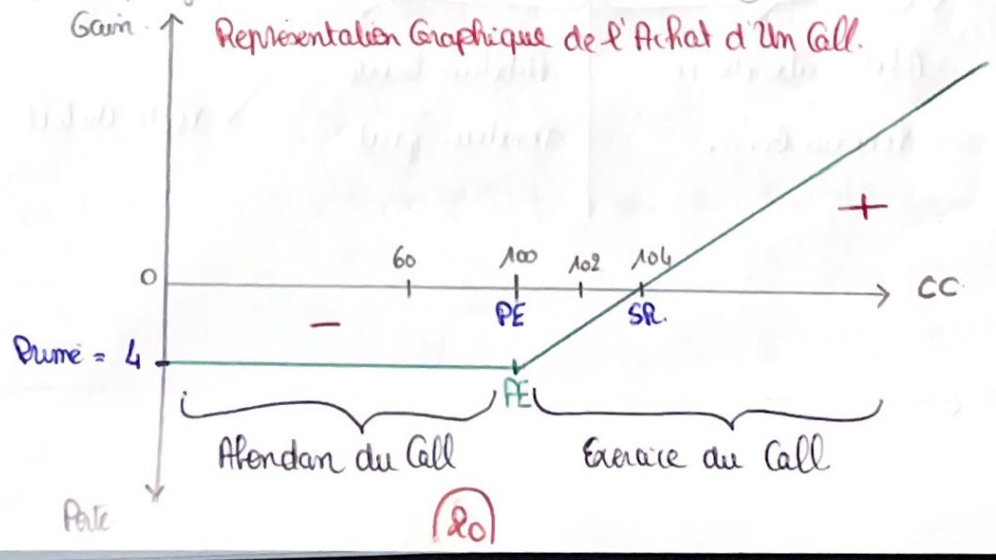 Gain
Représentation Graphique de l'Achat d'Un Call.
60
100
102
104
0
CC
PE
SR.
Prime = 4
PE
Abendan du Call
Exercice du Call
Perte
20